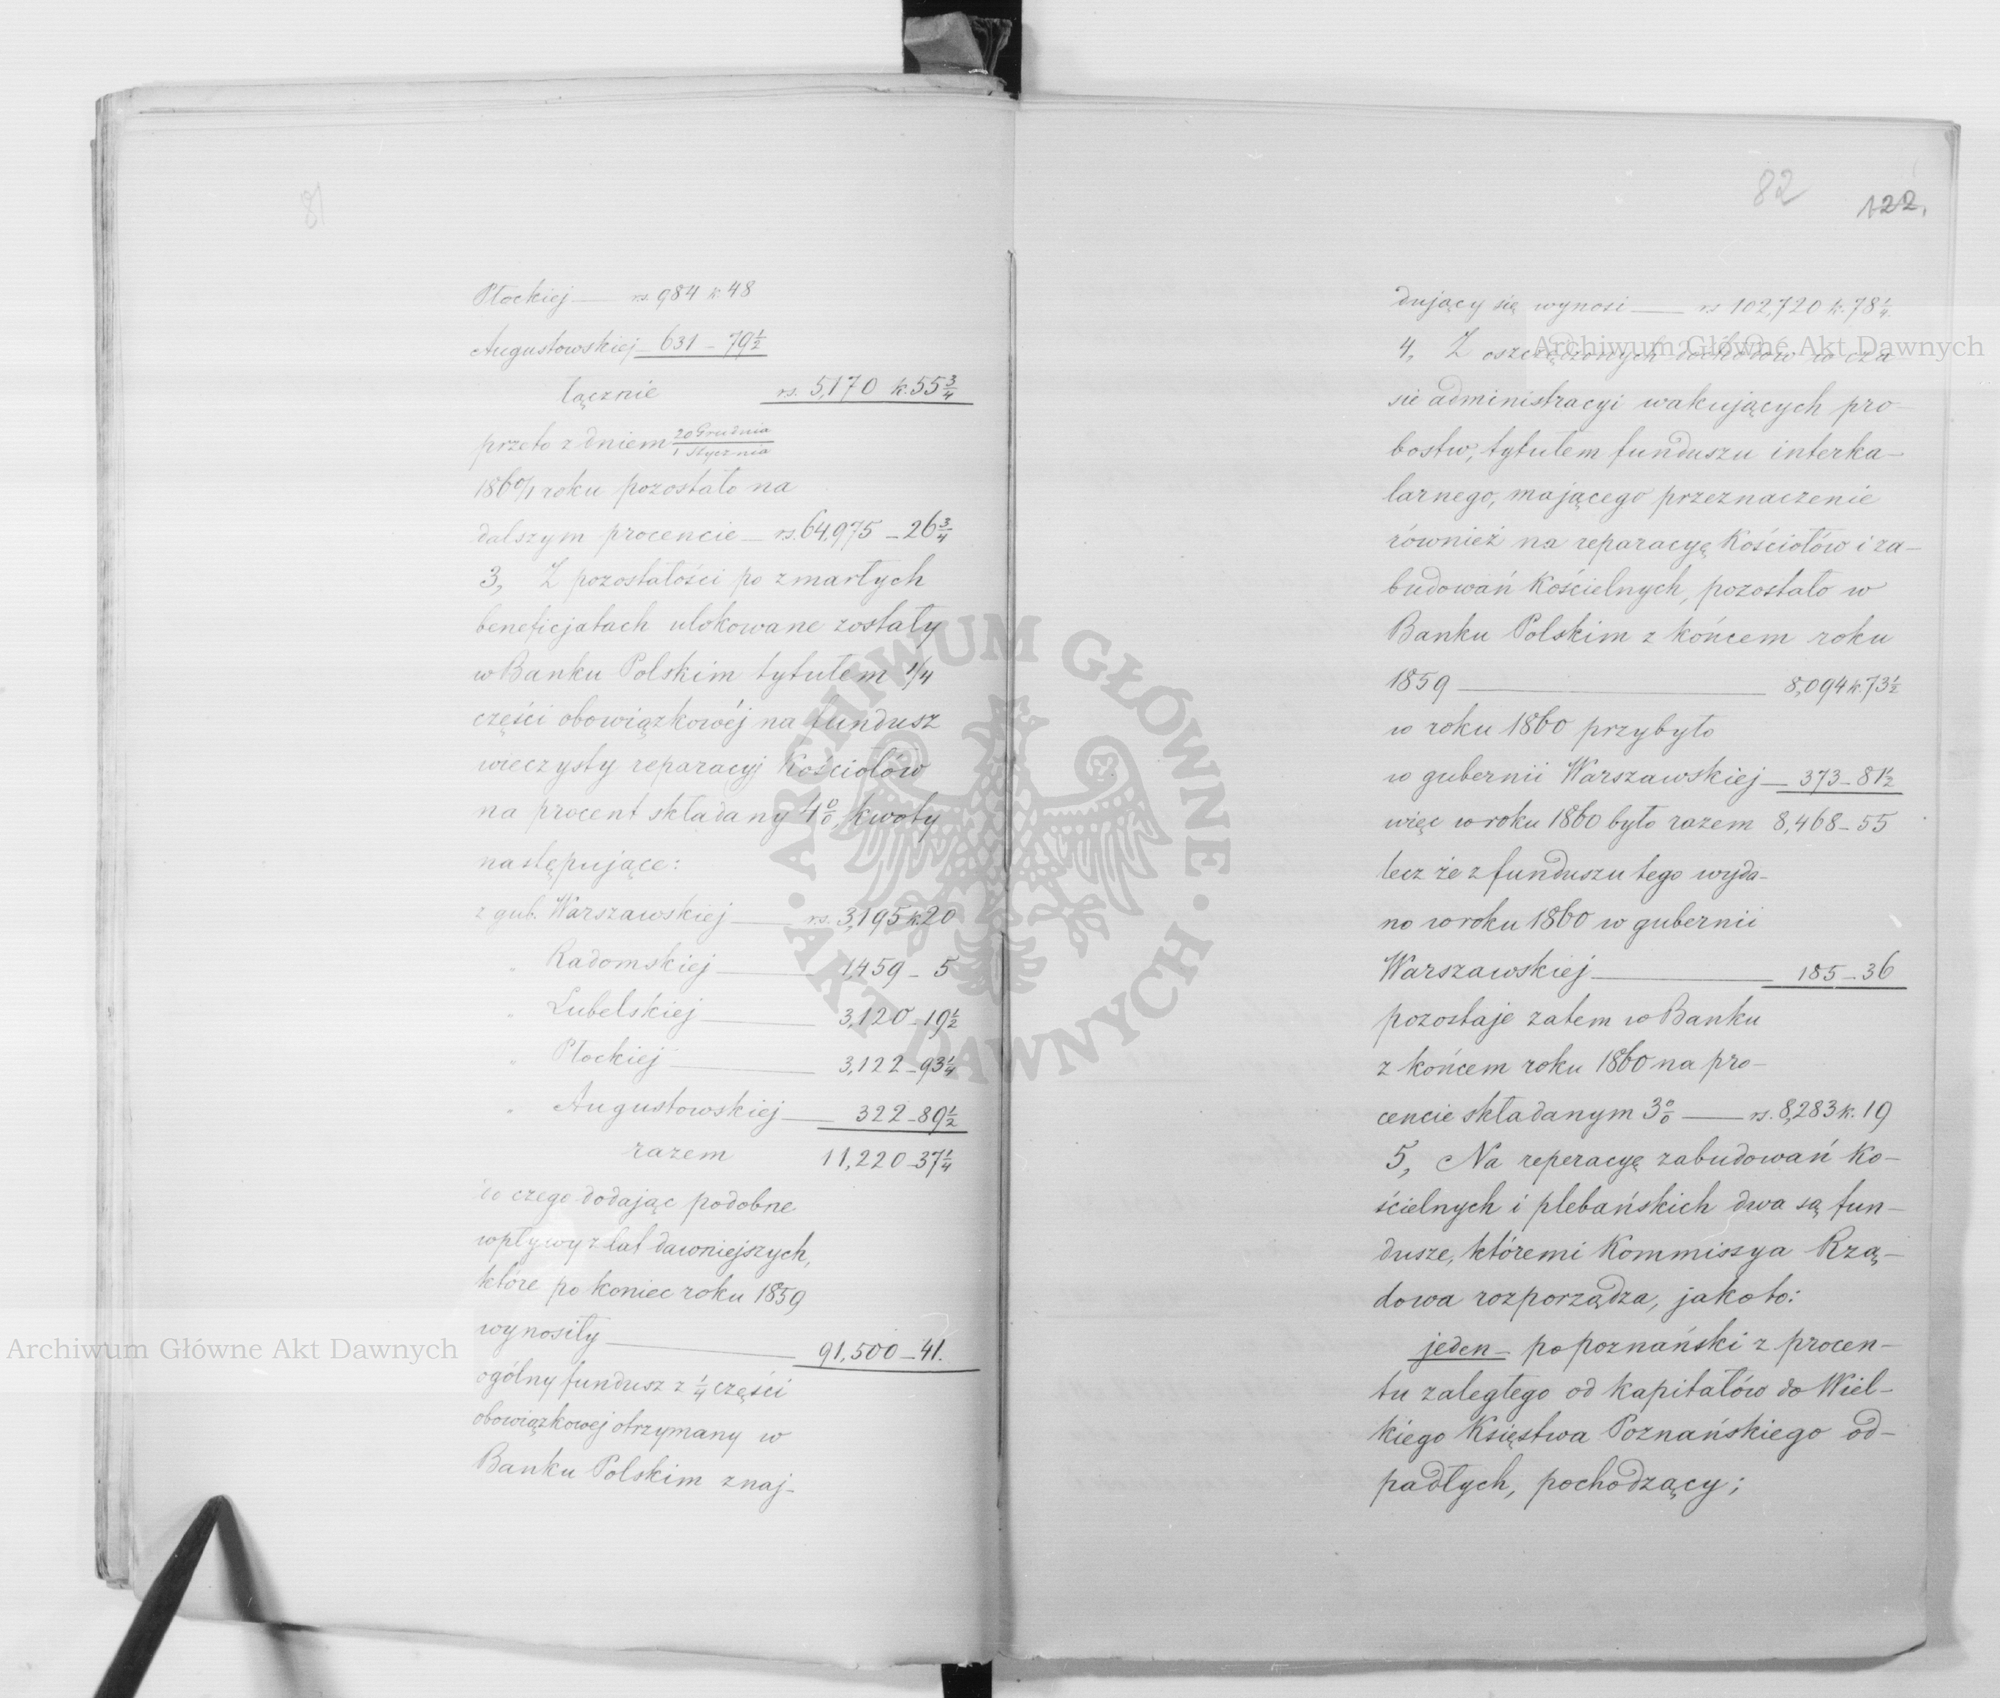 81
Płockiej — rs. 984 k. 48
Augustowskiej — 631 — 79½
łącznie rs. 5,170 k. 55¾
przeto z dniem 20 Grudnia / 1 Stycznia
1860/1 roku pozostało na
dalszym procencie — rs. 64,975 — 26¾
3, Z pozostałości po zmarłych
beneficjatach ulokowane zostały
w Banku Polskim tytułem 1/4
części obowiązkowéj na fundusz
wieczysty reparacyi Kościołów
na procent składany 4%, kwoty
następujące:
z gub. Warszawskiej — rs. 3,195 k. 20
" Radomskiej — 1,459 — 5
" Lubelskiej — 3,120 — 19½
" Płockiej — 3,122 — 93¼
" Augustowskiej — 322 — 89½
razem 11,220 — 37¼
do czego dodając podobne
wpływy z lat dawniejszych,
które po koniec roku 1859
wynosiły — 91,500 — 41.
ogólny fundusz z ¼ części
obowiązkowej otrzymany w
Banku Polskim znaj-
82
122.
dujący się wynosi — rs 102,720 k. 78¼
4, Z oszczędzonych dochodów w cza
sie administracyi wakujących pro-
bostw, tytułem funduszu interka-
larnego, mającego przeznaczenie
również na reparacyę Kościołów i za-
budowań Kościelnych, pozostało w
Banku Polskim z końcem roku
1859 — 8,094 k. 73½
w roku 1860 przybyło
w gubernii Warszawskiej — 373 — 81½
więc w roku 1860 było razem 8,468 — 55
lecz że z funduszu tego wyda-
no w roku 1860 w gubernii
Warszawskiej — 185 — 36
pozostaje zatem w Banku
z końcem roku 1860 na pro-
cencie składanym 3% — rs. 8,283 k. 19
5, Na reperacyę zabudowań Ko-
ścielnych i plebańskich dwa są fun-
dusze, któremi Kommissya Rzą-
dowa rozporządza, jakoto:
jeden — popoznański z procen-
tu zaległego od kapitałów do Wiel-
kiego Księstwa Poznańskiego od-
padłych, pochodzący;
Archiwum Główne Akt Dawnych
Archiwum Główne Akt Dawnych
ARCHIWUM GŁÓWNE
· AKT DAWNYCH ·